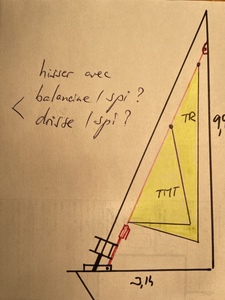 hisser avec
< balancine / spi ?
drisse / spi ?
TR
TMT